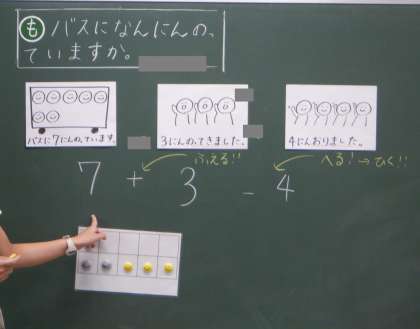 も バスになんにんの、
ていますか。
バスに7にんの、ています。
3にんの、てきました。
4にんおりました。
ふえる!!
へる!→ひく!!
7 + 3 - 4